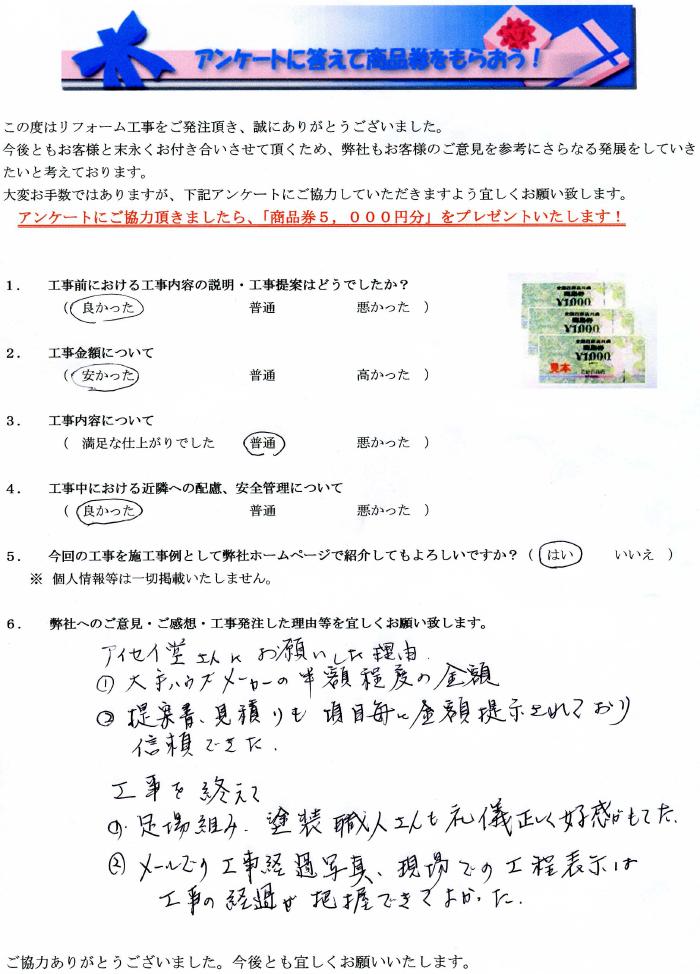 アンケートに答えて商品券をもらおう！
この度はリフォーム工事をご発注頂き、誠にありがとうございました。
今後ともお客様と末永くお付き合いさせて頂くため、弊社もお客様のご意見を参考にさらなる発展をしていき
たいと考えております。
大変お手数ではありますが、下記アンケートにご協力していただきますよう宜しくお願い致します。
アンケートにご協力頂きましたら、「商品券５，０００円分」をプレゼントいたします！
１．　工事前における工事内容の説明・工事提案はどうでしたか？
（　良かった　　　　普通　　　　悪かった　）
２．　工事金額について
（　安かった　　　　普通　　　　高かった　）
３．　工事内容について
（　満足な仕上がりでした　　普通　　　　悪かった　）
４．　工事中における近隣への配慮、安全管理について
（　良かった　　　　普通　　　　悪かった　）
５．　今回の工事を施工事例として弊社ホームページで紹介してもよろしいですか？（　はい　　いいえ　）
※ 個人情報等は一切掲載いたしません。
６．　弊社へのご意見・ご感想・工事発注した理由等を宜しくお願い致します。
¥1,000
¥1,000
¥1,000
見本
アイセイ堂さんにお願いした理由.
① 大手ハウスメーカーの半額程度の金額
② 提案書、見積りも項目毎に金額提示されており
信頼できた.
工事を終えて
①. 足場組み. 塗装職人さんも礼儀正しく好感がもてた.
② メールでの工事経過写真、現場での工程表示は
工事の経過が把握できてよかった.
ご協力ありがとうございました。今後とも宜しくお願いいたします。